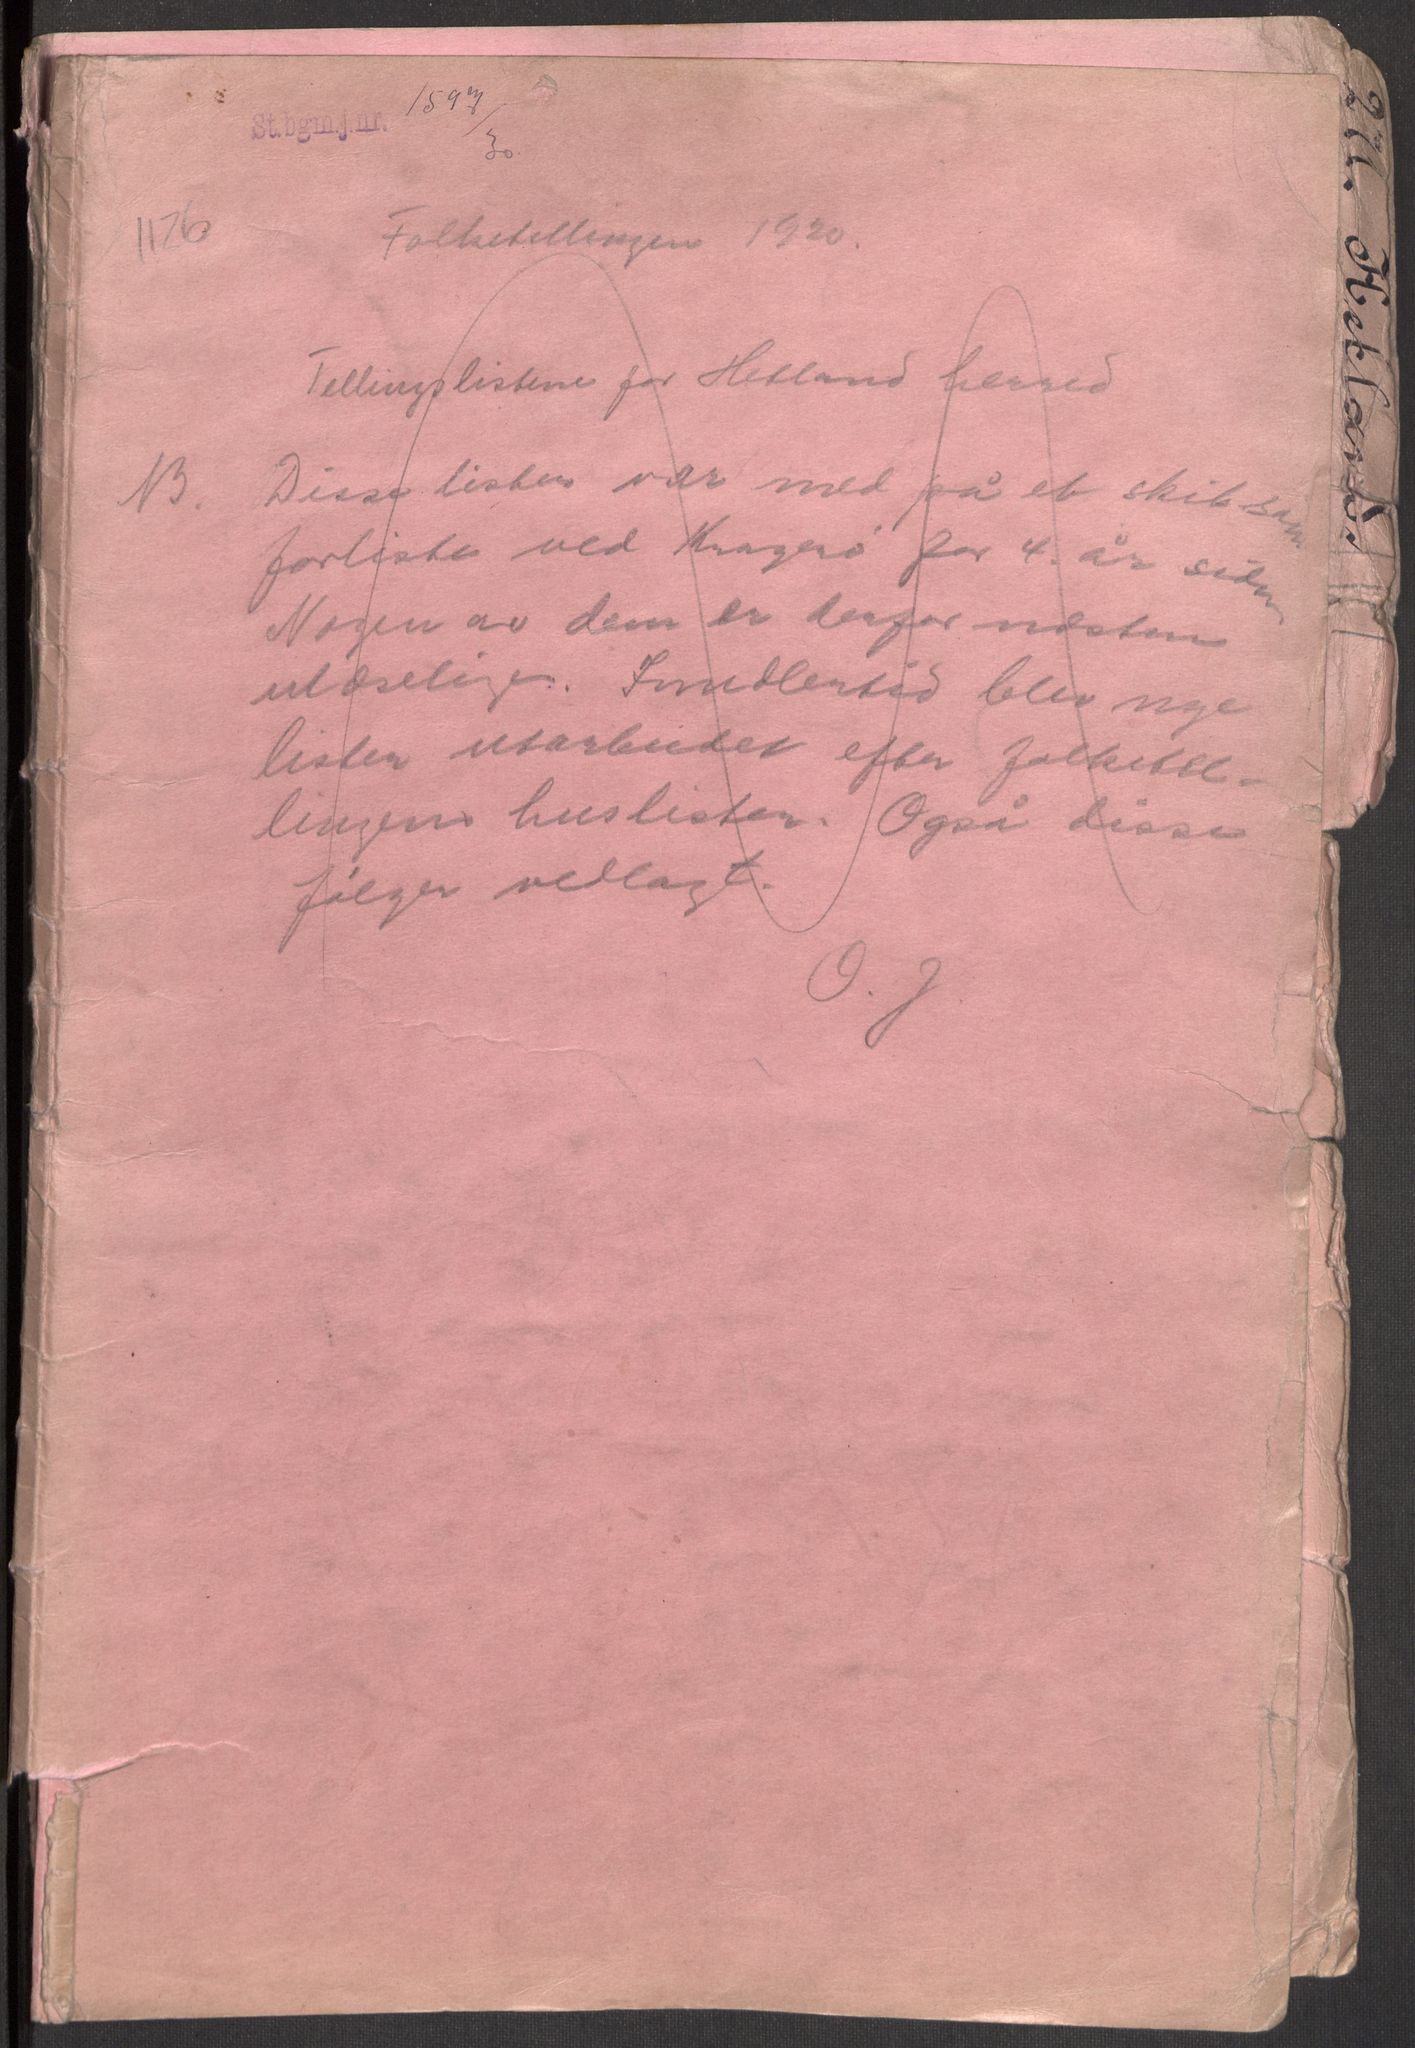 St.bgm.j.nr. 1597/30
1126
Folketellingen 1920.
Tellingslistene for Hetland herred
NB. Disse lister var med på et skib som
forliste ved Kragerö for 4 år siden
Nogen av dem er derfor næsten
ulæselige. Imidlertid blev nye
lister utarbeidet efter folketel-
lingens huslister. Også disse
følger vedlagt.
O. J.
271. Hetland.